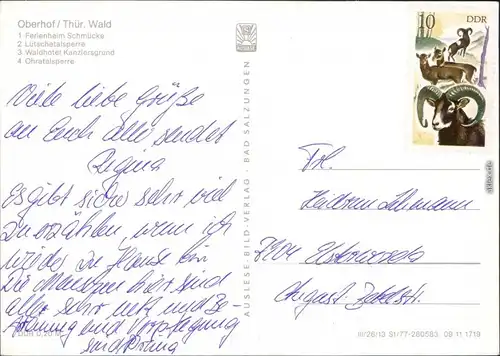 Oberhof/Thür. Wald
1 Ferienheim Schmücke
2 Lütschetalsperre
3 Waldhotel Kanzlersgrund
4 Ohratalsperre
Viele liebe Grüße
an Euch alle sendet
Regina
Es gibt sicher sehr viel
zu erzählen, wenn ich
wieder zu Hause bin
Die Menschen hier sind
alle sehr nett und Be-
und Verpflegung
sind prima
DDR 0,20
AUSLESE-BILD-VERLAG · BAD SALZUNGEN
AUSLESE
10
DDR
Fr.
Lehmann
August-Bebelstr.
III/26/13 S1/77-280583 09 11 1719